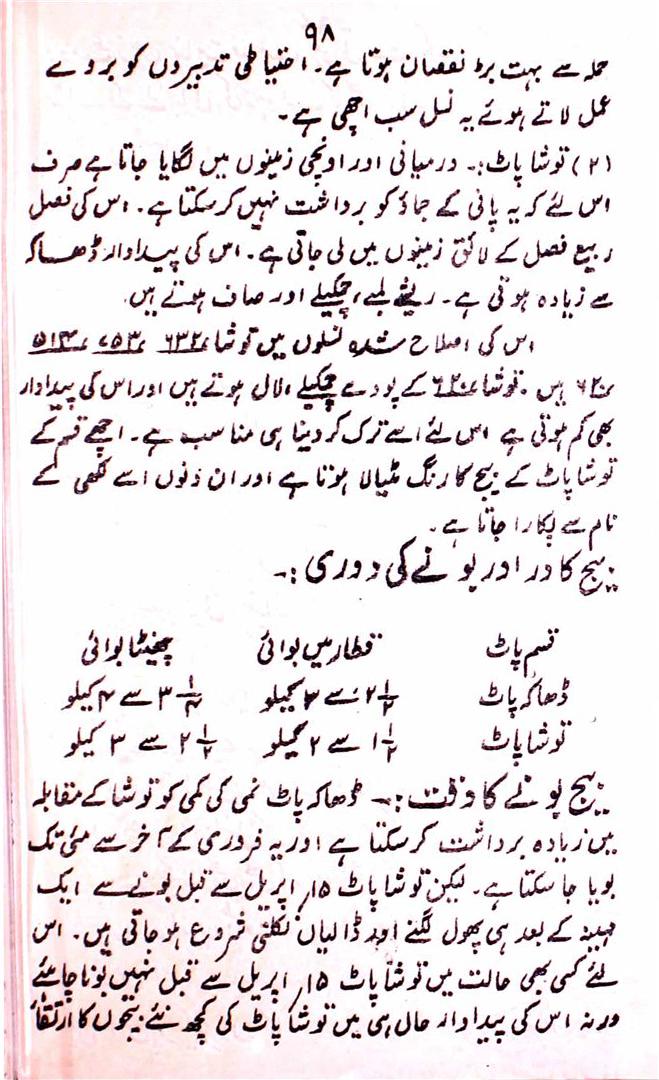 ۹۸
حملہ سے بہت بڑا نقصان ہوتا ہے۔ احتیاطی تدبیروں کو بروے
عمل لاتے ہوئے یہ نسل سب اچھی ہے۔
(۲) توشا پاٹ:۔ درمیانی اور اونچی زمینوں میں لگایا جاتا ہے صرف
اس لئے کہ یہ پانی کے جماؤ کو برداشت نہیں کرسکتا ہے۔ اس کی فصل
ربیع فصل کے لائق زمینوں میں لی جاتی ہے۔ اس کی پیداوار ڈھاکہ
سے زیادہ ہوتی ہے۔ ریشے لمبے، چمکیلے اور صاف ہوتے ہیں۔
اس کی اصلاح شدہ نسلوں میں توشا ۶۳۲، ۷۵۳، ۵۱۳
۶۲۰ ہیں۔ توشا ۶۲۰ کے پودے چمکیلے لال ہوتے ہیں اور اس کی پیداوار
بھی کم ہوتی ہے اس لئے اسے ترک کردینا ہی مناسب ہے۔ اچھے قسم کے
توشا پاٹ کے بیج کا رنگ مٹیالا ہوتا ہے اور ان دنوں اسے لکھی کے
نام سے پکارا جاتا ہے۔
بیج کا در اور بونے کی دوری:۔
قسم پاٹ قطار میں بوائی چھینٹا بوائی
ڈھاکہ پاٹ ۲½ سے ۳ کیلو ۳¼ سے ۴ کیلو
توشا پاٹ ۱½ سے ۲ کیلو ۲½ سے ۳ کیلو
بیج بونے کا وقت:۔ ڈھاکہ پاٹ نمی کی کمی کو توشا کے مقابلہ
میں زیادہ برداشت کرسکتا ہے اور یہ فروری کے آخر سے مئی تک
بویا جاسکتا ہے۔ لیکن توشا پاٹ ۱۵؍ اپریل سے قبل بونے سے ایک
مہینہ کے بعد ہی پھول لگنے اور ڈالیاں نکلنی شروع ہوجاتی ہیں۔ اس
لئے کسی بھی حالت میں توشا پاٹ ۱۵؍ اپریل سے قبل نہیں بونا چاہئے
ورنہ اس کی پیداوار حال ہی میں توشا پاٹ کی کچھ نئے بیجوں کا ارتقاء